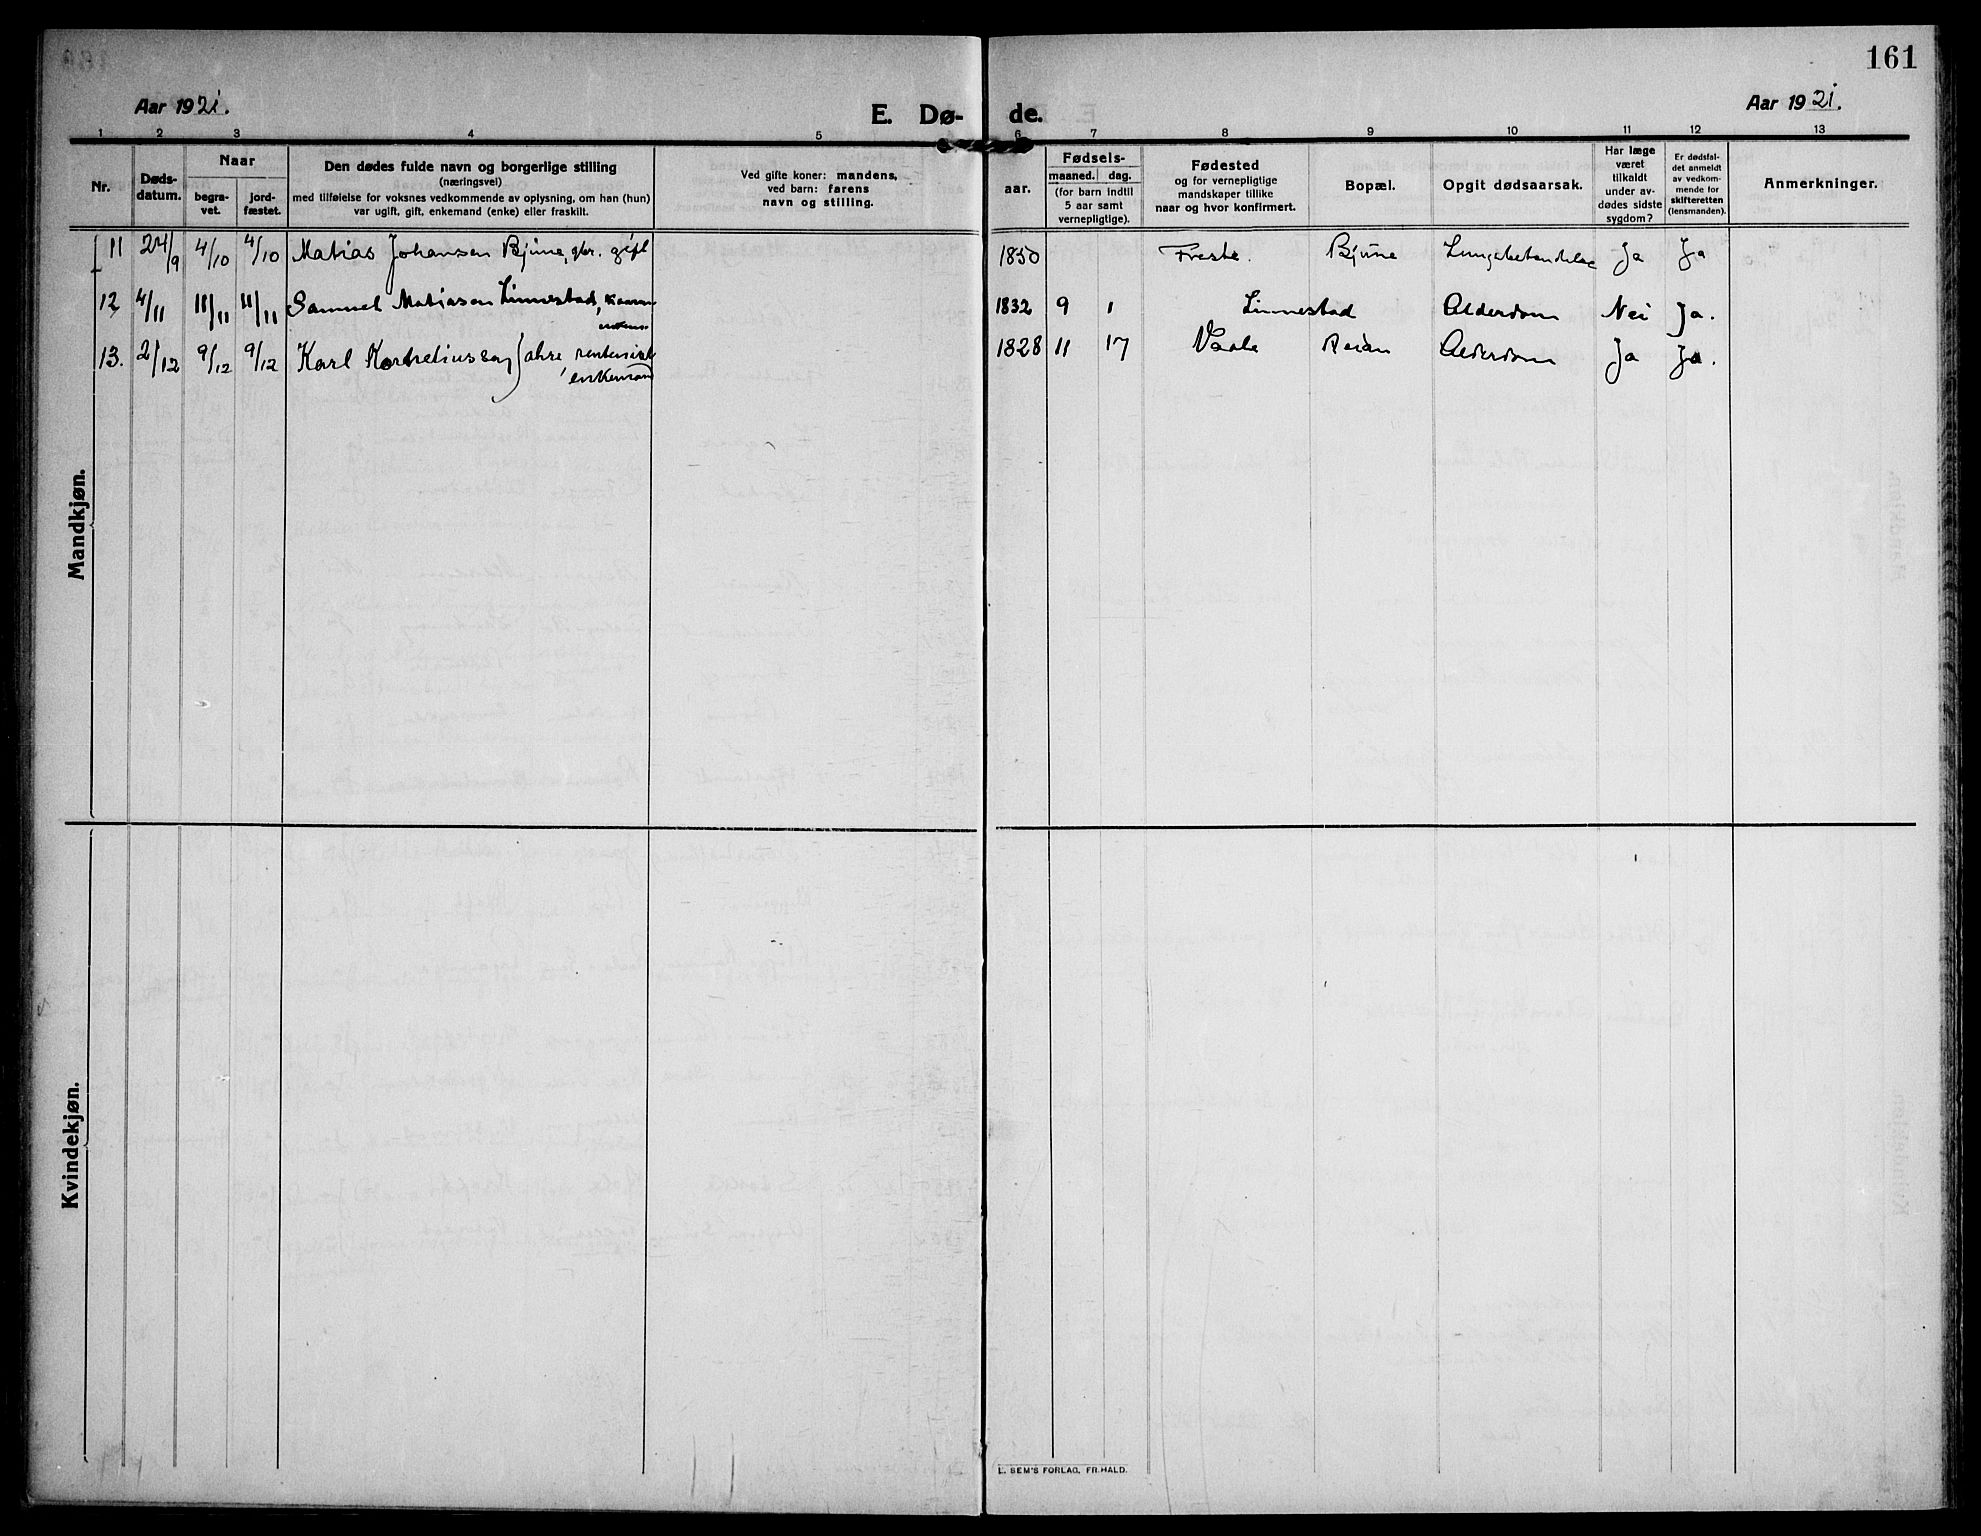 161
Aar 1921.
E. Dø- de.
Aar 1921.
1 2 3 4 5 6 7 8 9 10 11 12 13
Nr.
Døds-
datum.
Naar
begra-
vet.
jord-
fæstet.
Den dødes fulde navn og borgerlige stilling
(næringsvei)
med tilføielse for voksnes vedkommende av oplysning, om han (hun)
var ugift, gift, enkemand (enke) eller fraskilt.
Ved gifte koner: mandens,
ved barn: farens
navn og stilling.
Fødsels-
aar.
maaned. dag.
(for barn indtil
5 aar samt
vernepligtige).
Fødested
og for vernepligtige
mandskaper tillike
naar og hvor konfirmert.
Bopæl.
Opgit dødsaarsak.
Har læge
været
tilkaldt
under av-
dødes sidste
sygdom?
Er dødsfal-
det anmeldt
av vedkom-
mende for
skifteretten
(lensmanden).
Anmerkninger.
Mandkjøn.
11 24/9 4/10 4/10 Matias Johansen Bjune, gbr. gift 1850 Bjune Ja Ja
12 4/11 11/11 11/11 Samuel Matiasen Linnestad, 1832 9 1 Linnestad Alderdom Nei Ja.
13. 2/12 9/12 9/12 Karl Korneliussen 1828 11 17 Vaale Alderdom Ja Ja.
enkemand
Kvindekjøn.
L. SEM'S FORLAG, FR.HALD.